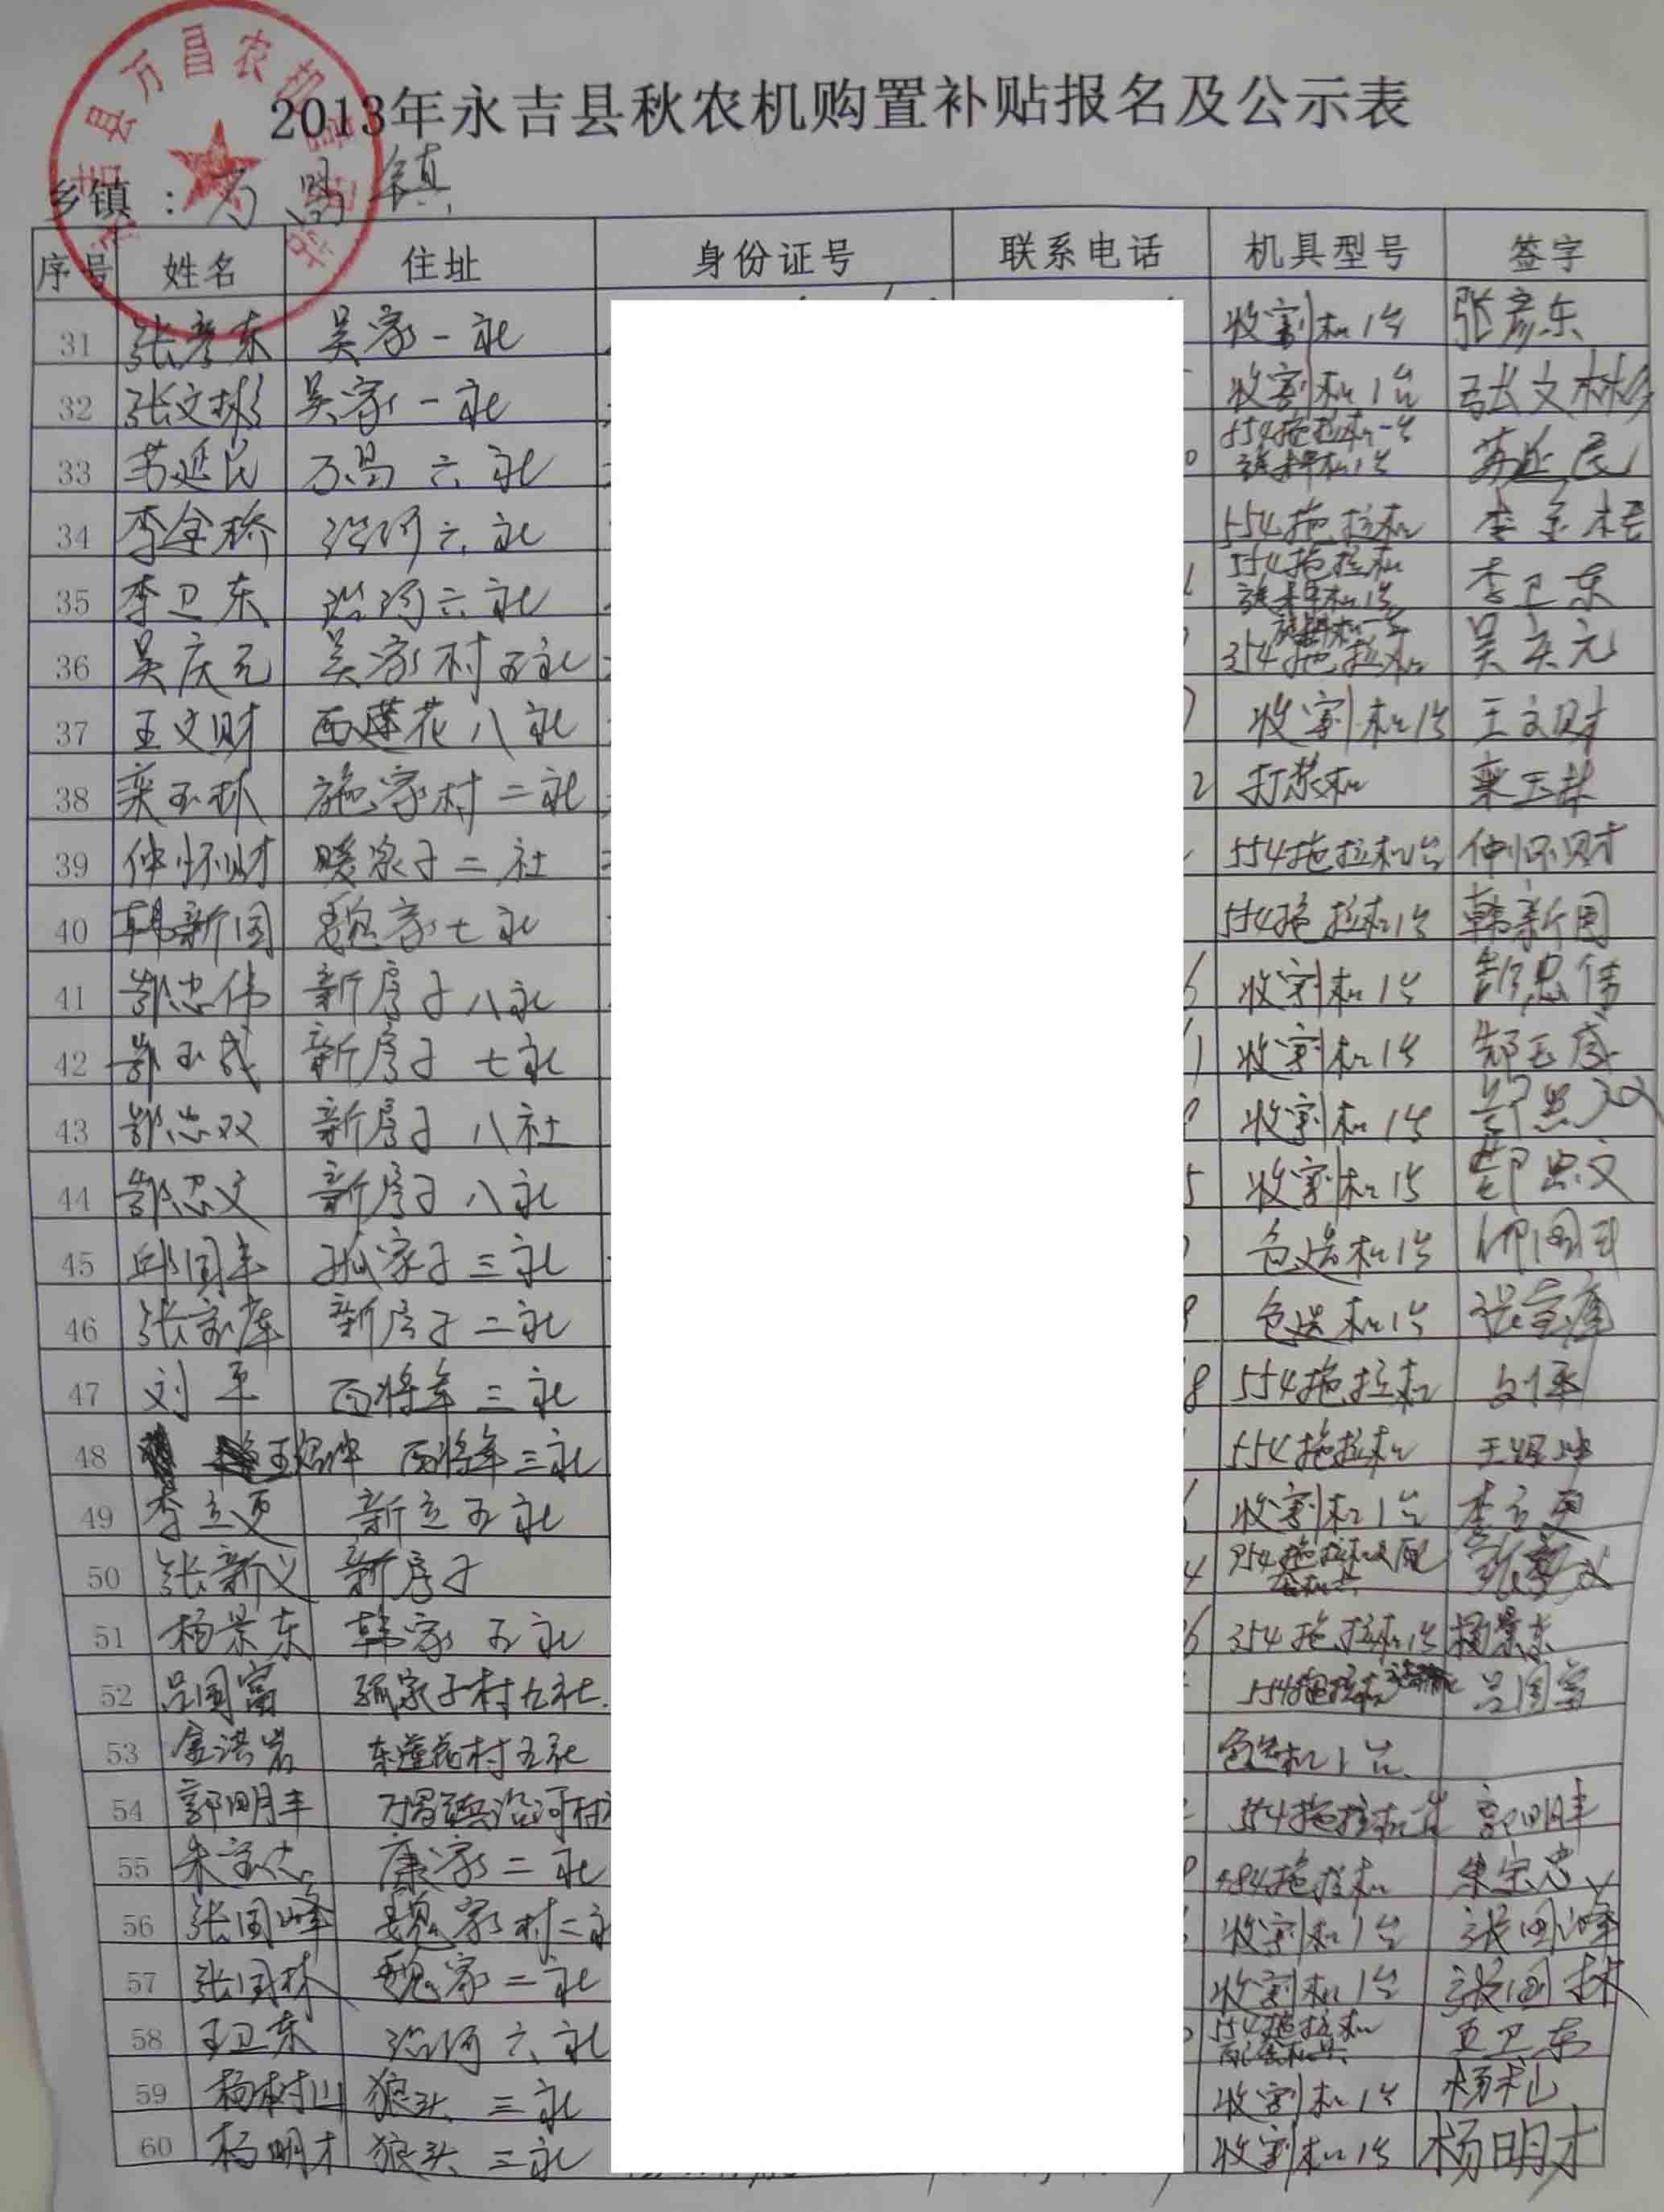 2013年永吉县秋农机购置补贴报名及公示表
乡镇：万昌镇
序号 姓名 住址 身份证号 联系电话 机具型号 签字
31 张彦东 吴家一社 收割机1台 张彦东
32 张文彬 吴家一社 收割机1台 张文彬
33 苏延民 万昌六社 554拖拉机一台 旋耕机1台 苏延民
34 李金桥 沿河六社 554拖拉机 李金桥
35 李卫东 沿河六社 554拖拉机 旋耕机1台 李卫东
36 吴庆元 吴家村五社 旋耕机一台 354拖拉机 吴庆元
37 王文财 西莲花八社 收割机1台 王文财
38 栾玉林 施家村二社 2 打浆机 栾玉林
39 仲怀财 暖泉子二社 554拖拉机1台 仲怀财
40 韩新国 魏家七社 554拖拉机1台 韩新国
41 郜忠伟 新房子八社 6 收割机1台 郜忠伟
42 郜玉成 新房子七社 1 收割机1台 郜玉成
43 郜忠双 新房子八社 收割机1台 郜忠双
44 郜忠文 新房子八社 5 收割机1台 郜忠文
45 邱国丰 孤家子三社 色选机1台 邱国丰
46 张家库 新房子二社 色选机1台
47 刘平 西将军三社 8 554拖拉机 刘平
48 西将军三社 554拖拉机
49 李立更 新立五社 收割机1台 李立更
50 张新义 新房子 4 954拖拉机及配套机具 张新义
51 杨景东 韩家五社 6 354拖拉机1台 杨景东
52 吕国富 孤家子村九社 554拖拉机 吕国富
53 金洪岩 东莲花村五社 色选机1台
54 郭明丰 万昌镇沿河村 554拖拉机1台 郭明丰
55 朱宝忠 康家二社 拖拉机 朱宝忠
56 张国峰 魏家村二社 收割机1台 张国峰
57 张国林 魏家二社 收割机1台 张国林
58 王卫东 沿河六社 554拖拉机 配套机具 王卫东
59 杨树山 狼头三社 收割机1台
60 杨明才 狼头三社 收割机1台 杨明才